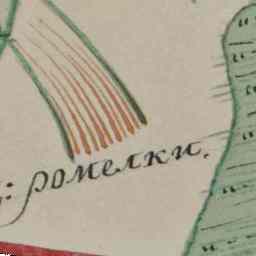 : ромелки.